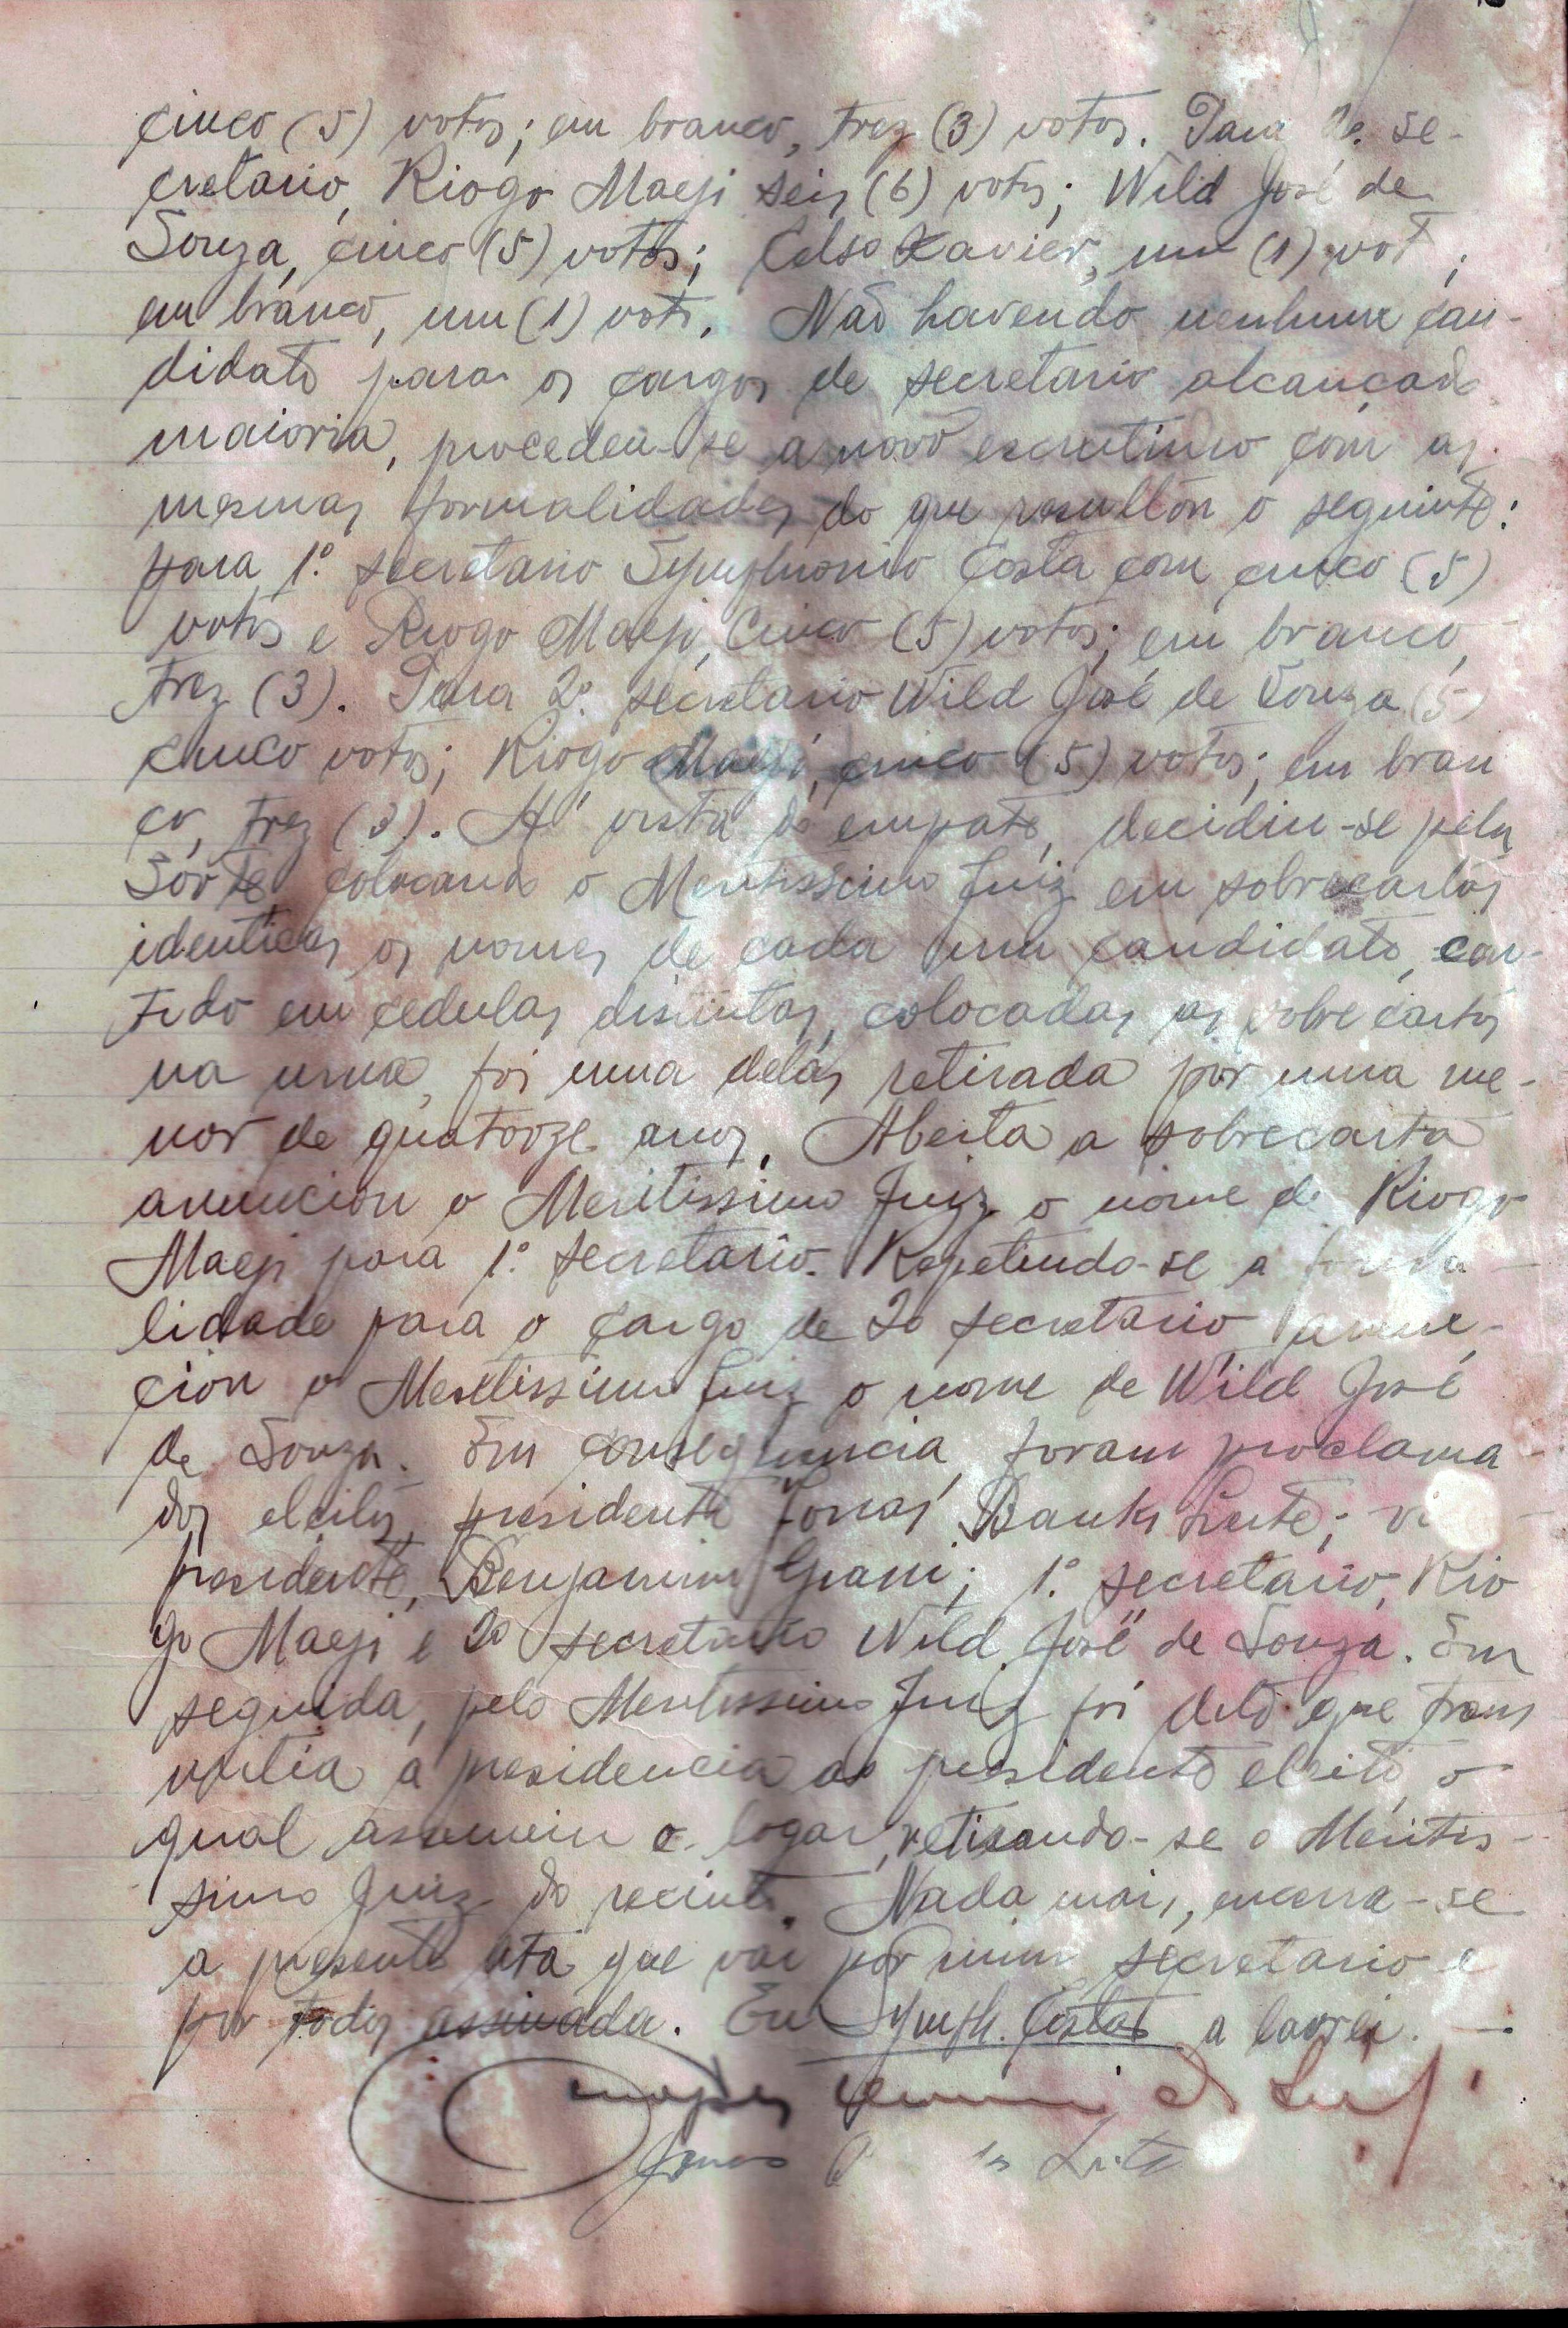 cinco (5) votos; em branco, trez (3) votos. Para 2º. se-
cretario, Riogo Maeji seis (6) votos; Wild José de
Souza, cinco (5) votos; Celso Xavier, um (1) vot ;
em branco, um (1) voto. Não havendo nenhum can-
didato para os cargos de secretario alcançado
maioria, procedeu-se a novo escrutinio com as
mesmas formalidades do que resultou o seguinte:
para 1º. secretario Symphronio Costa com cinco (5)
votos e Riogo Maeji, Cinco (5) votos; em branco,
trez (3). Para 2º. secretario Wild José de Souza (5)
cinco votos; Riogo Maeji, cinco (5) votos; em bran
co, trez (3). A' vista do empate, decidiu-se pela
Sorte colocando o Meritissimo Juiz em sobrecartas
identicas os nomes de cada um candidato, con-
tido em cedulas distintas, colocadas as sobre cartas
na urna, foi uma delas retirada por uma me-
nor de quatorze anos. Aberta a sobrecarta
anunciou o Meritissimo Juiz o nome de Riogo
Maeji para 1º. secretario. Repetindo-se a forma
lidade para o cargo de 2o secretario anun-
ciou o Meritissimo Juiz o nome de Wild José
de Souza. Em consequencia foram proclama-
dos eleitos, presidente Jonas Banks Leite; vi
presidente, Benjamim Giani; 1º. secretario, Rio
go Maeji e 2o secretario Wild José de Souza. Em
seguida, pelo Meritissimo Juiz foi dito que trans
mitia a presidencia ao presidente eleito, o
qual assumiu o logar, retirando-se o Meritis-
simo Juiz do recinto. Nada mais, encerra-se
a presente ata que vai por mim secretario e
por todos assinada. Eu Symph. Costa a lavrei. —
Jonas Leite